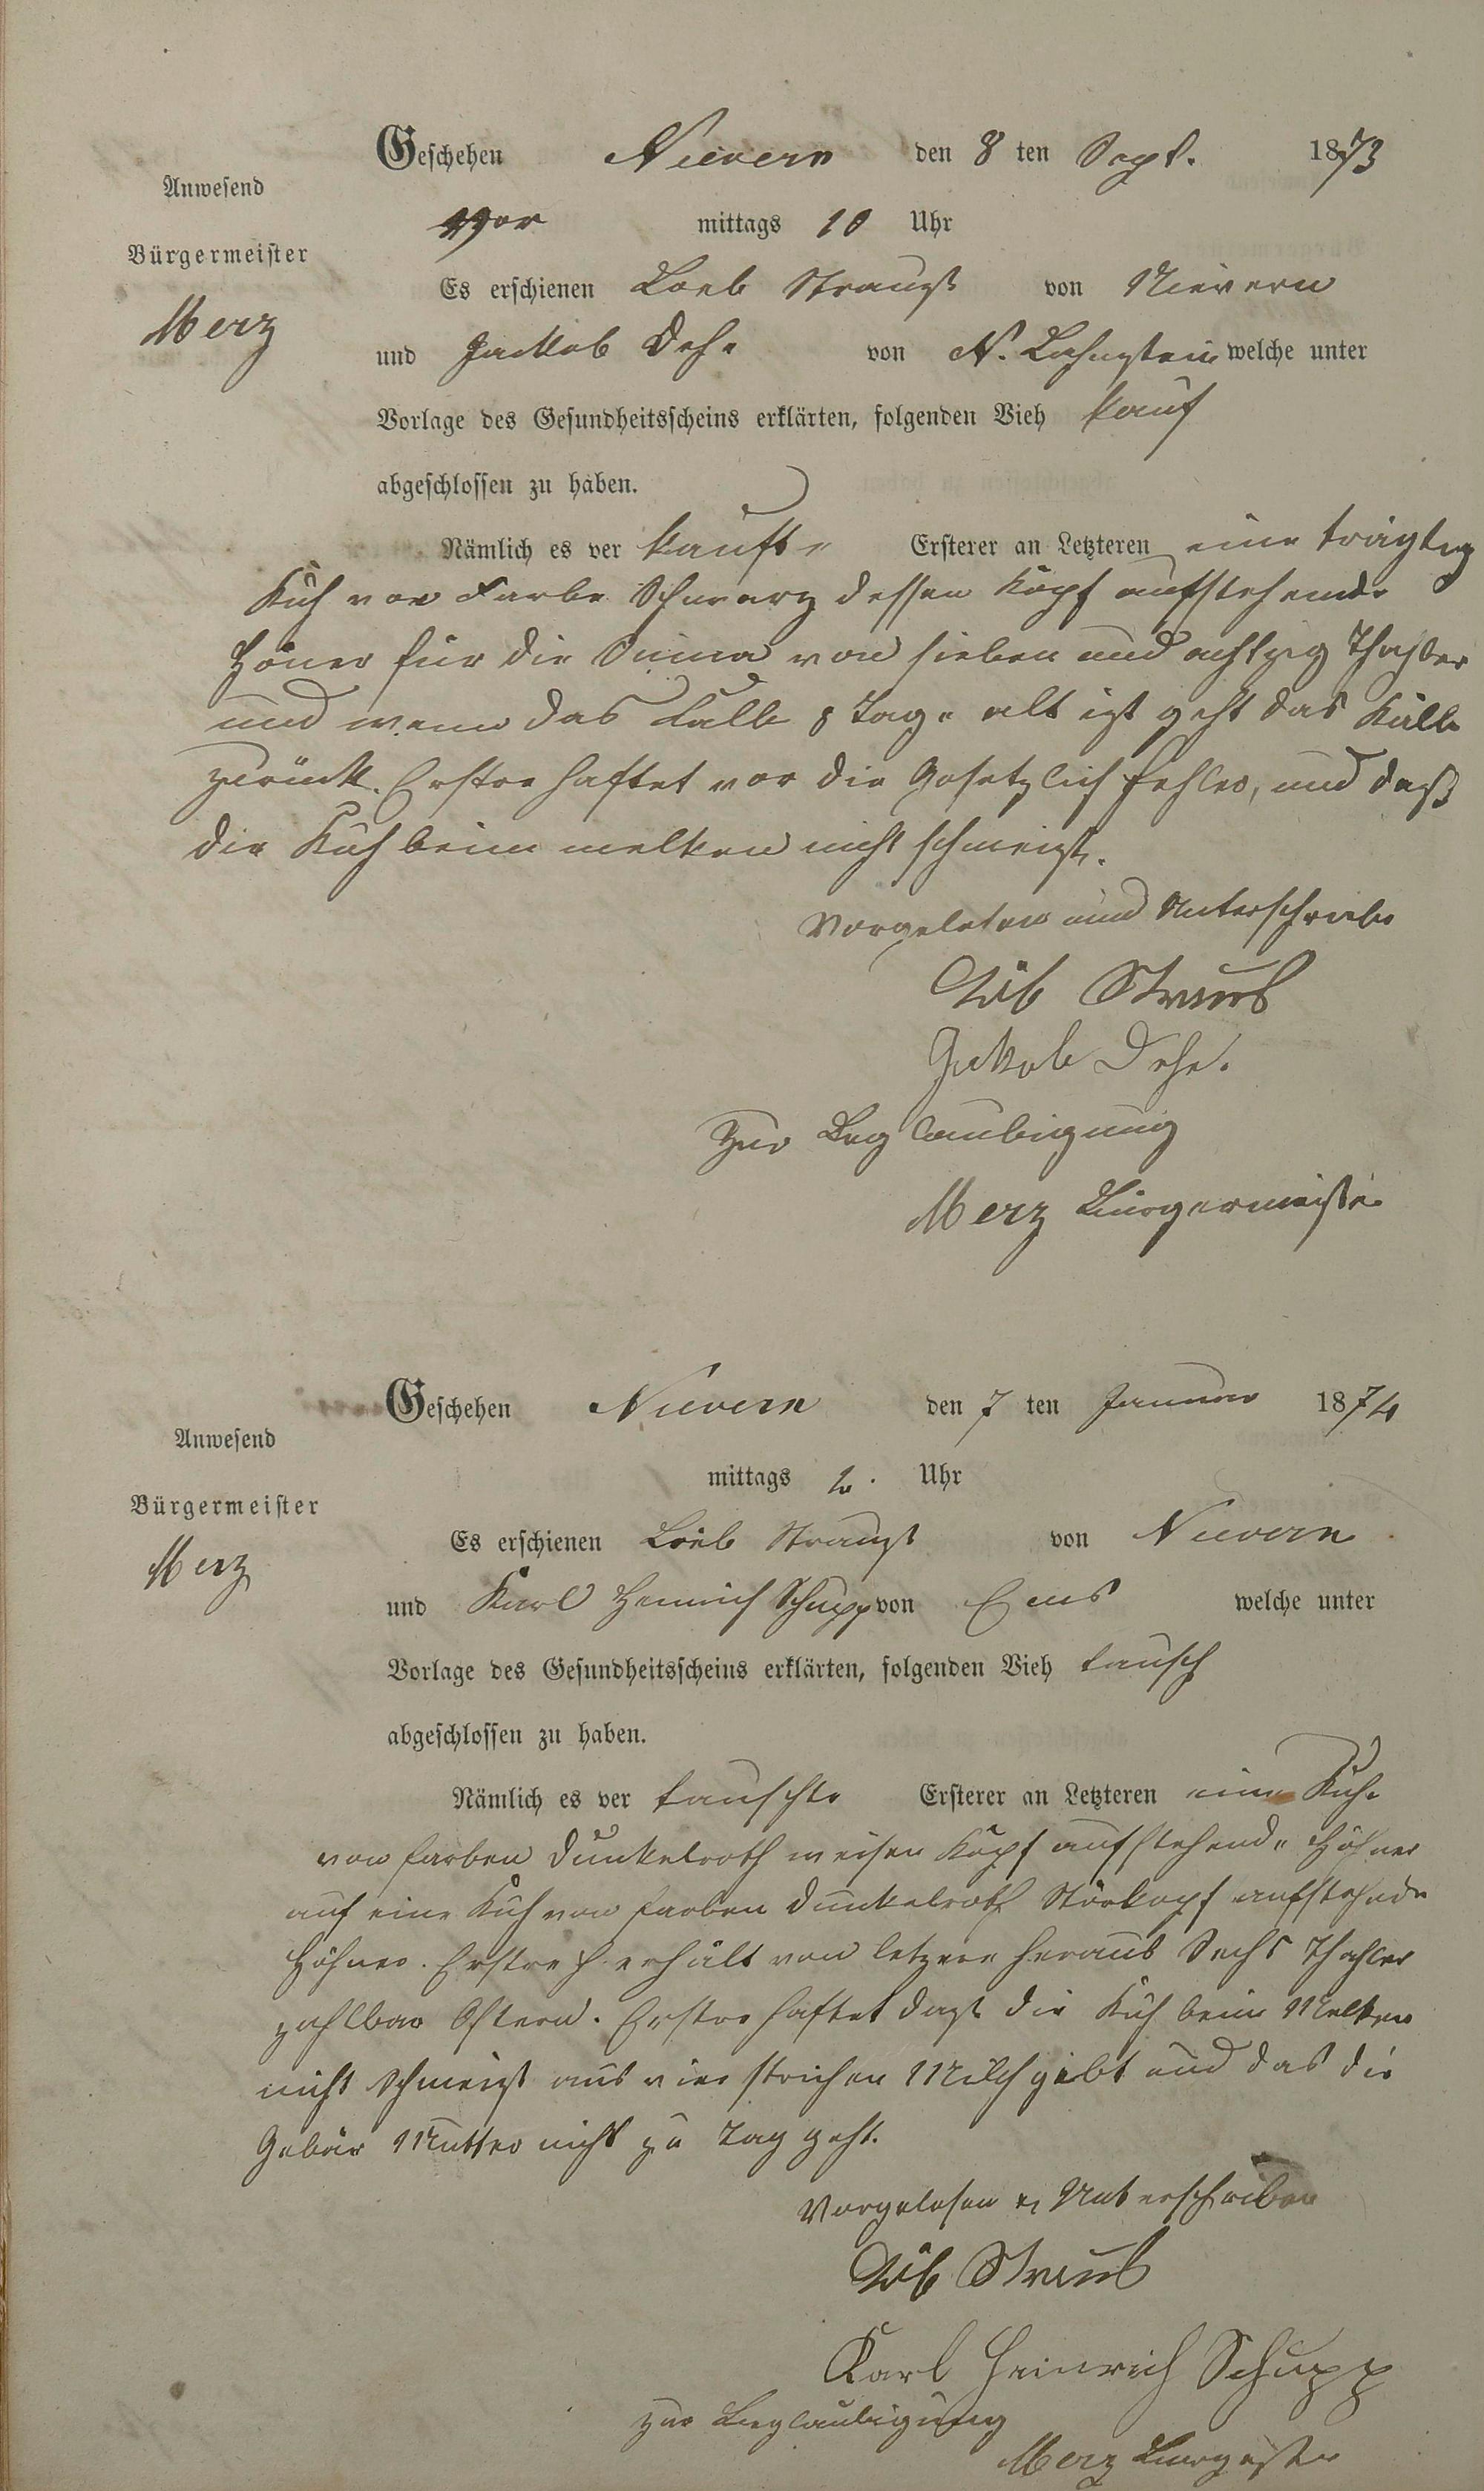 Geschehen Nievern den 8 ten Sept. 1873
Anwesend
Vor mittags 10 Uhr
Bürgermeister
Es erschienen Loeb Strauß von Nievern
Merz
und Jackob Dehe von N. Lahnstein welche unter
Vorlage des Gesundheitsscheins erklärten, folgenden Vieh kauf
abgeschlossen zu haben.
Nämlich es ver kaufte Ersterer an Letzteren eine trägtig
Kuh von Farbe Schwarz dessen Kopf aufstehende
Höner für die Suma von sieben und achtzig Thahler
und wenn das Kalb 8 Tage alt ist geht das Kalb
zurück. Erstre haftet vor die Gesetzlich fehler, und daß
die Kuh beim melken nicht schmeist.
Vorgelesen und Unterschrieben
Löb Straus
Jakob Dehe.
Zur Beglaubigung
Merz Bürgermeister
Geschehen Nievern den 7 ten Januar 1874
Anwesend
mittags 2. Uhr
Bürgermeister
Es erschienen Loeb Strauß von Nievern
Merz
und Karl Heinrich Schupp von Ems welche unter
Vorlage des Gesundheitsscheins erklärten, folgenden Vieh tausch
abgeschlossen zu haben.
Nämlich es ver tauschte Ersterer an Letzteren eine Kuhe
von farben dunkelroth weisen Kopf aufstehende Höhner
auf eine Kuh von farben dunkelroth Störkopf aufstehende
Höhner. Erstre erhält von letzere heraus Sechs Thahler
zahlbar Ostern. Erstre haftet daß die Kuh beim Melken
nicht schmeist aus vier strichen Milch gibt und das die
Gebär Mutter nicht zu Tag geht.
Vorgelesen u Unterschrieben
Löb Straus
Karl Heinrich Schupp
zur Beglaubigung
Merz Burgester